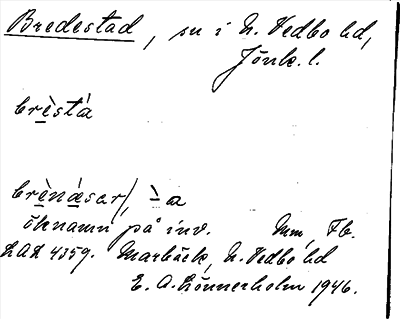 Bredestad, sn i N. Vedbo hd,
Jönk. l.
brèstá
brènæsar/, ̀-a
öknamn på inv. Mm, Fb.
LAL 4359. Marbäck, N. Vedbo hd
E. A. Lönnerholm 1946.